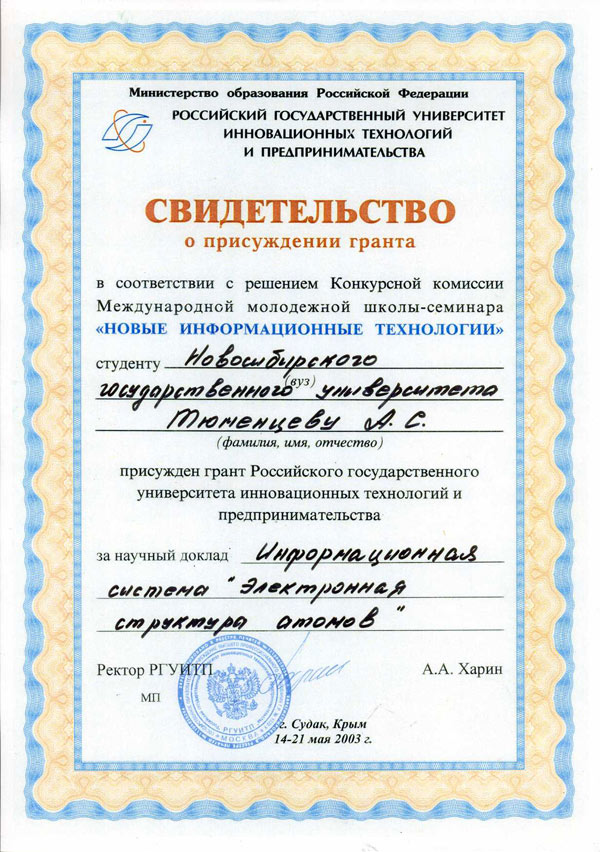 Министерство образования Российской Федерации
РОССИЙСКИЙ ГОСУДАРСТВЕННЫЙ УНИВЕРСИТЕТ
ИННОВАЦИОННЫХ ТЕХНОЛОГИЙ
И ПРЕДПРИНИМАТЕЛЬСТВА
СВИДЕТЕЛЬСТВО
о присуждении гранта
в соответствии с решением Конкурсной комиссии
Международной молодежной школы-семинара
«НОВЫЕ ИНФОРМАЦИОННЫЕ ТЕХНОЛОГИИ»
студенту Новосибирского
(вуз)
государственного университета
Тюменцеву А. С.
(фамилия, имя, отчество)
присужден грант Российского государственного
университета инновационных технологий и
предпринимательства
за научный доклад Информационная
система "Электронная
структура атомов"
Ректор РГУИТП А.А. Харин
МП
РГУИТП
МОСКВА
г. Судак, Крым
14-21 мая 2003 г.